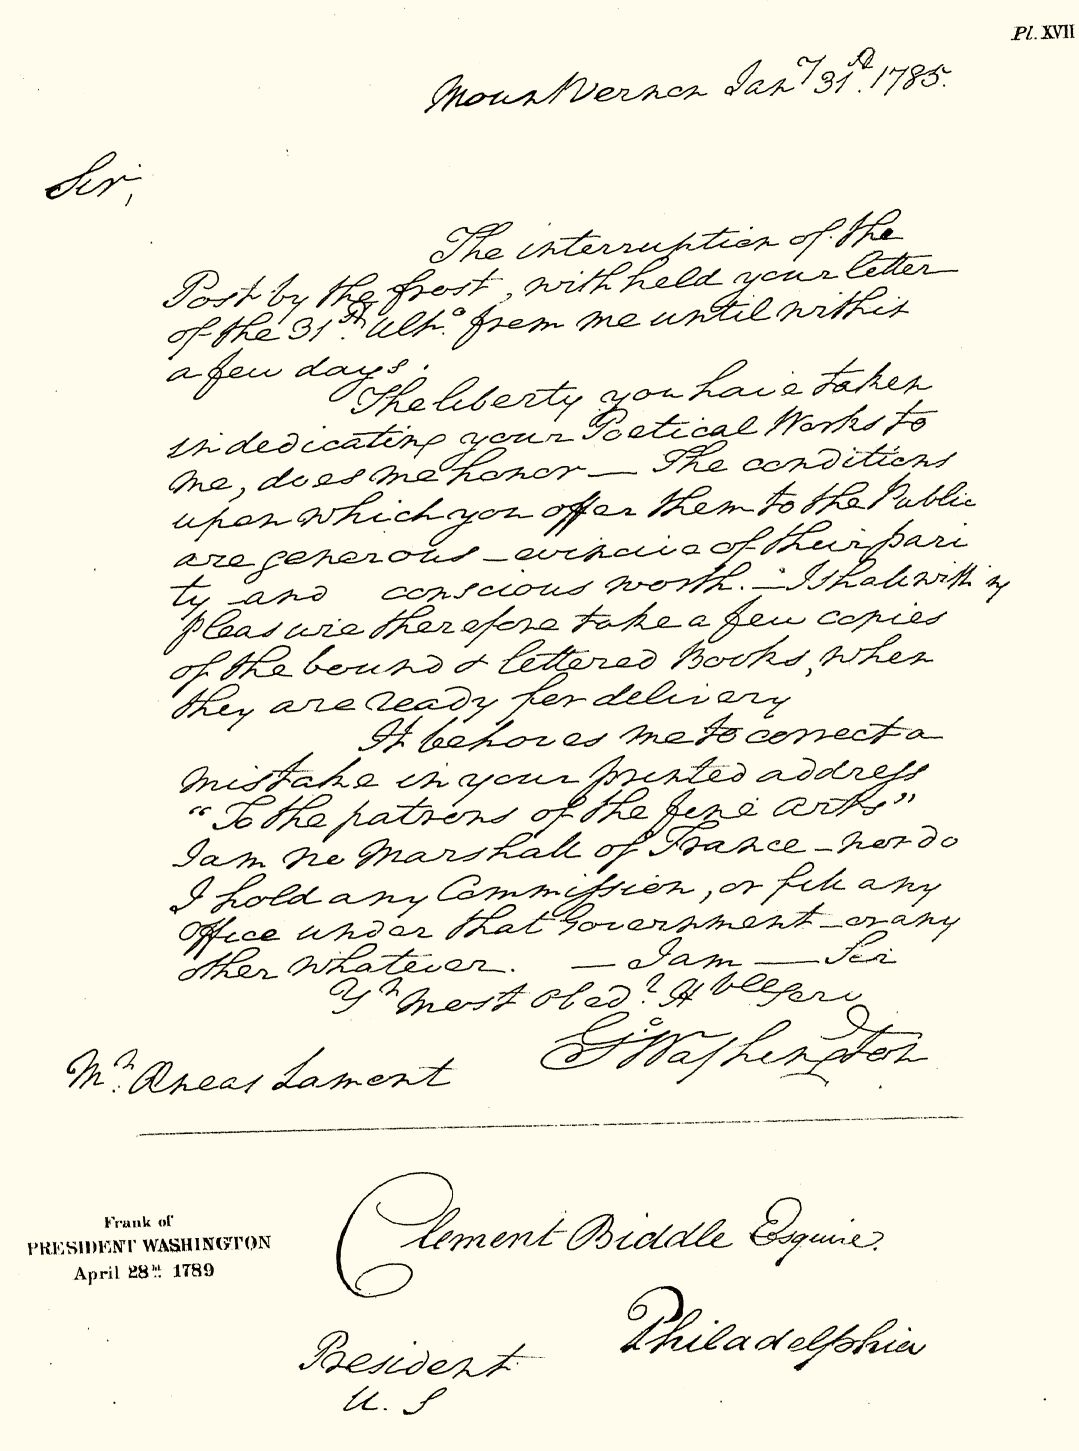 Pl. XVII
Mount Vernon Jany 31st. 1785.
Sir,
The interruption of the
Post by the frost, withheld your letter
of the 31st. Ulto. from me until within
a few days.
The liberty you have taken
in dedicating your Poetical Works to
me, does me honor — The conditions
upon which you offer them to the Public
are generous — evincive of their puri
ty and conscious worth. — I shall with
pleasure therefore take a few copies
of the bound & lettered Books, when
they are ready for delivery
It behoves me to correct a
mistake in your printed address
"To the patrons of the fine arts"
I am no Marshall of France — nor do
I hold any Commission, or fill any
Office under that Government — or any
other whatever. — I am — Sir
Yr. most Obedt. Hble Serv
Go. Washington
Mr. Aneas Lamont
Frank of
PRESIDENT WASHINGTON
April 28th. 1789
Clement Biddle Esquire.
Philadelphia
President
U. S